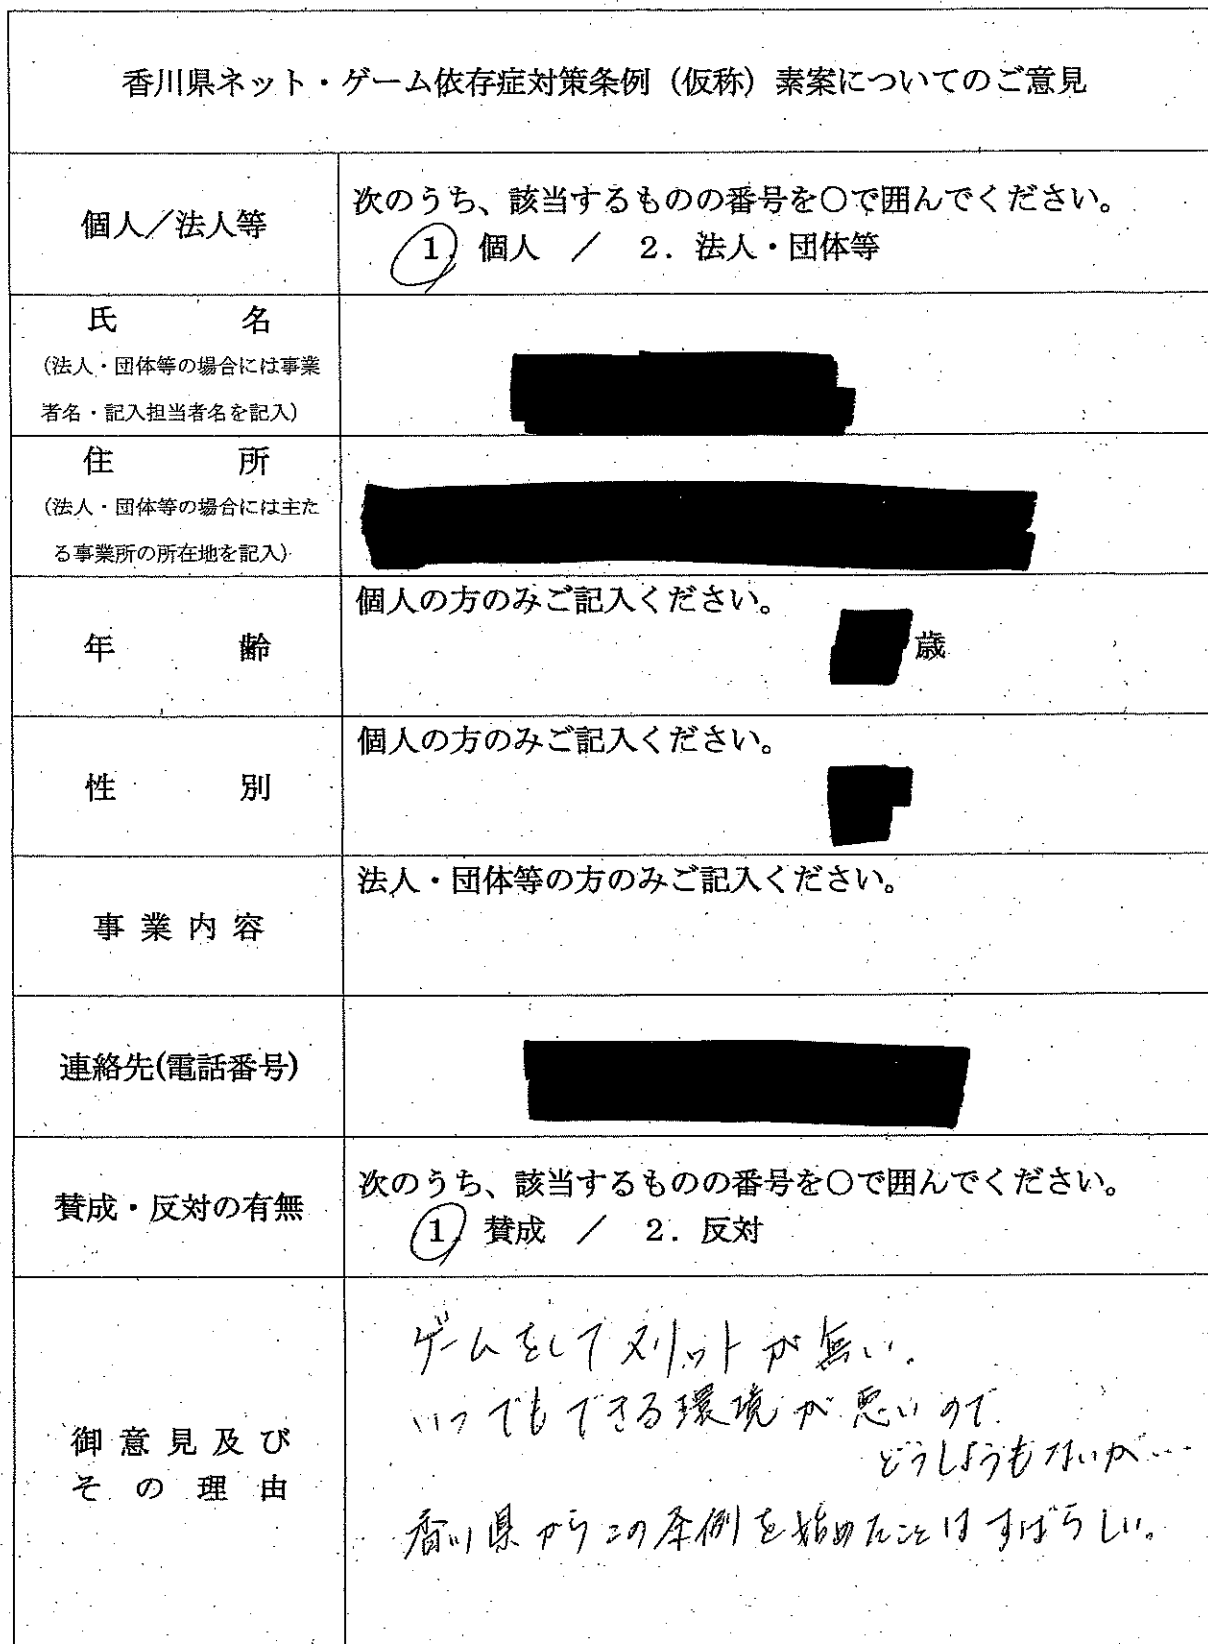 香川県ネット・ゲーム依存症対策条例（仮称）素案についてのご意見
個人／法人等
次のうち、該当するものの番号を○で囲んでください。
1 個人 ／ 2．法人・団体等
氏 名
（法人・団体等の場合には事業
者名・記入担当者名を記入）
住 所
（法人・団体等の場合には主た
る事業所の所在地を記入）
年 齢
個人の方のみご記入ください。
歳
性 別
個人の方のみご記入ください。
事 業 内 容
法人・団体等の方のみご記入ください。
連絡先(電話番号)
賛成・反対の有無
次のうち、該当するものの番号を○で囲んでください。
1 賛成 ／ 2．反対
御 意 見 及 び
そ の 理 由
ゲームをしてメリットが無い。
いつでもできる環境が悪いので
どうしようもないが…
香川県からこの条例を始めたことはすばらしい。